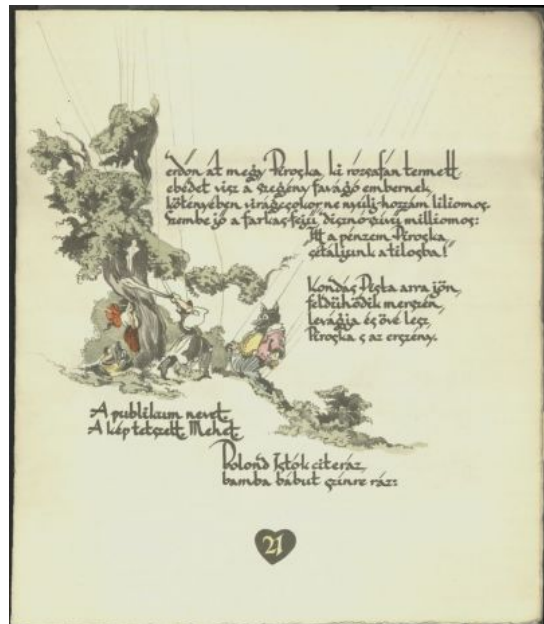 erdőn át megy Piroska, ki rózsafán termett
ebédet visz a szegény favágó embernek,
kötényében virágcsokor ne nyúlj hozzám liliomos.
Szembe jő a farkas-fejű, disznó-szívű milliomos:
"Itt a pénzem Piroska,
sétáljunk a tilosba!"
Kondás Pista arra jön,
feldühödik merszén,
levágja és övé lesz,
Piroska s az erszény.
A publikum nevet.
A kép tetszett. Mehet.
Bolond Istók citeráz,
bamba bábut színre ráz:
21